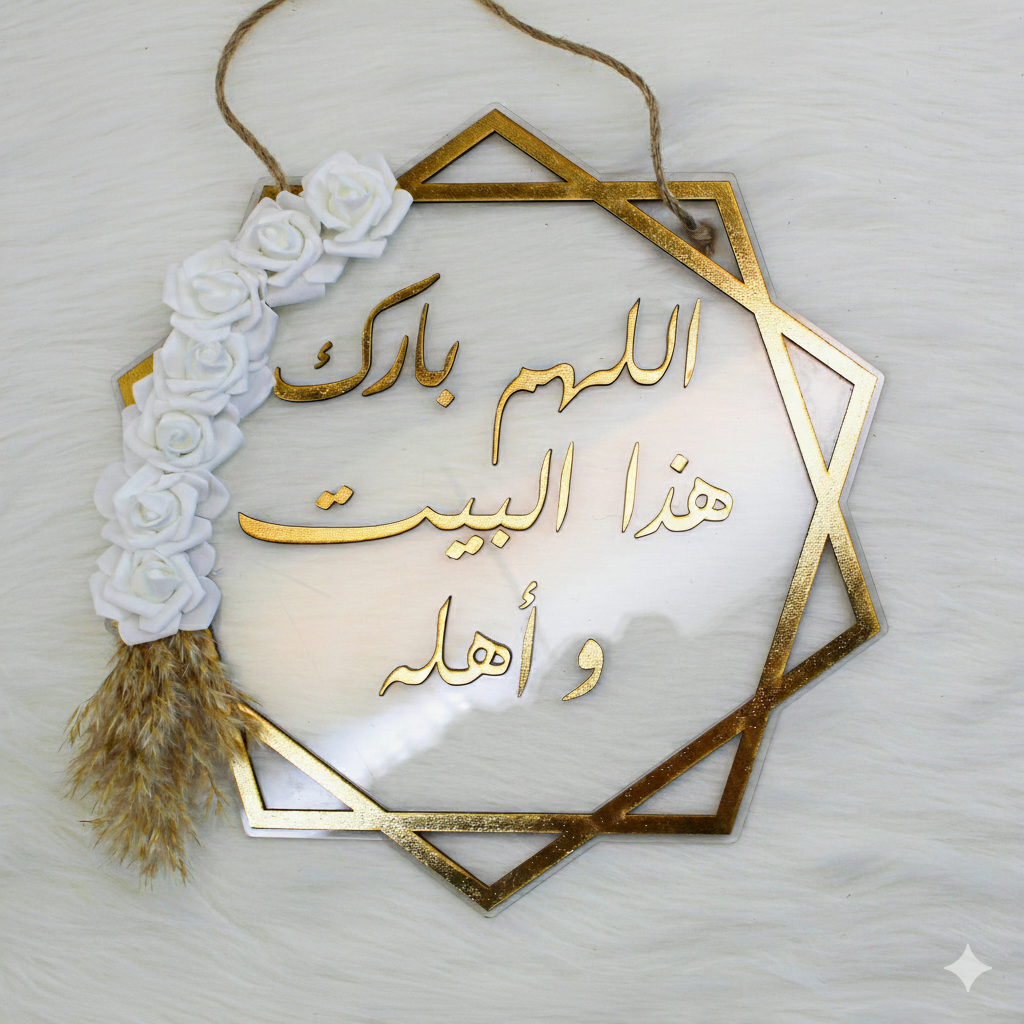 اللهم بارك
هذا البيت
و أهله